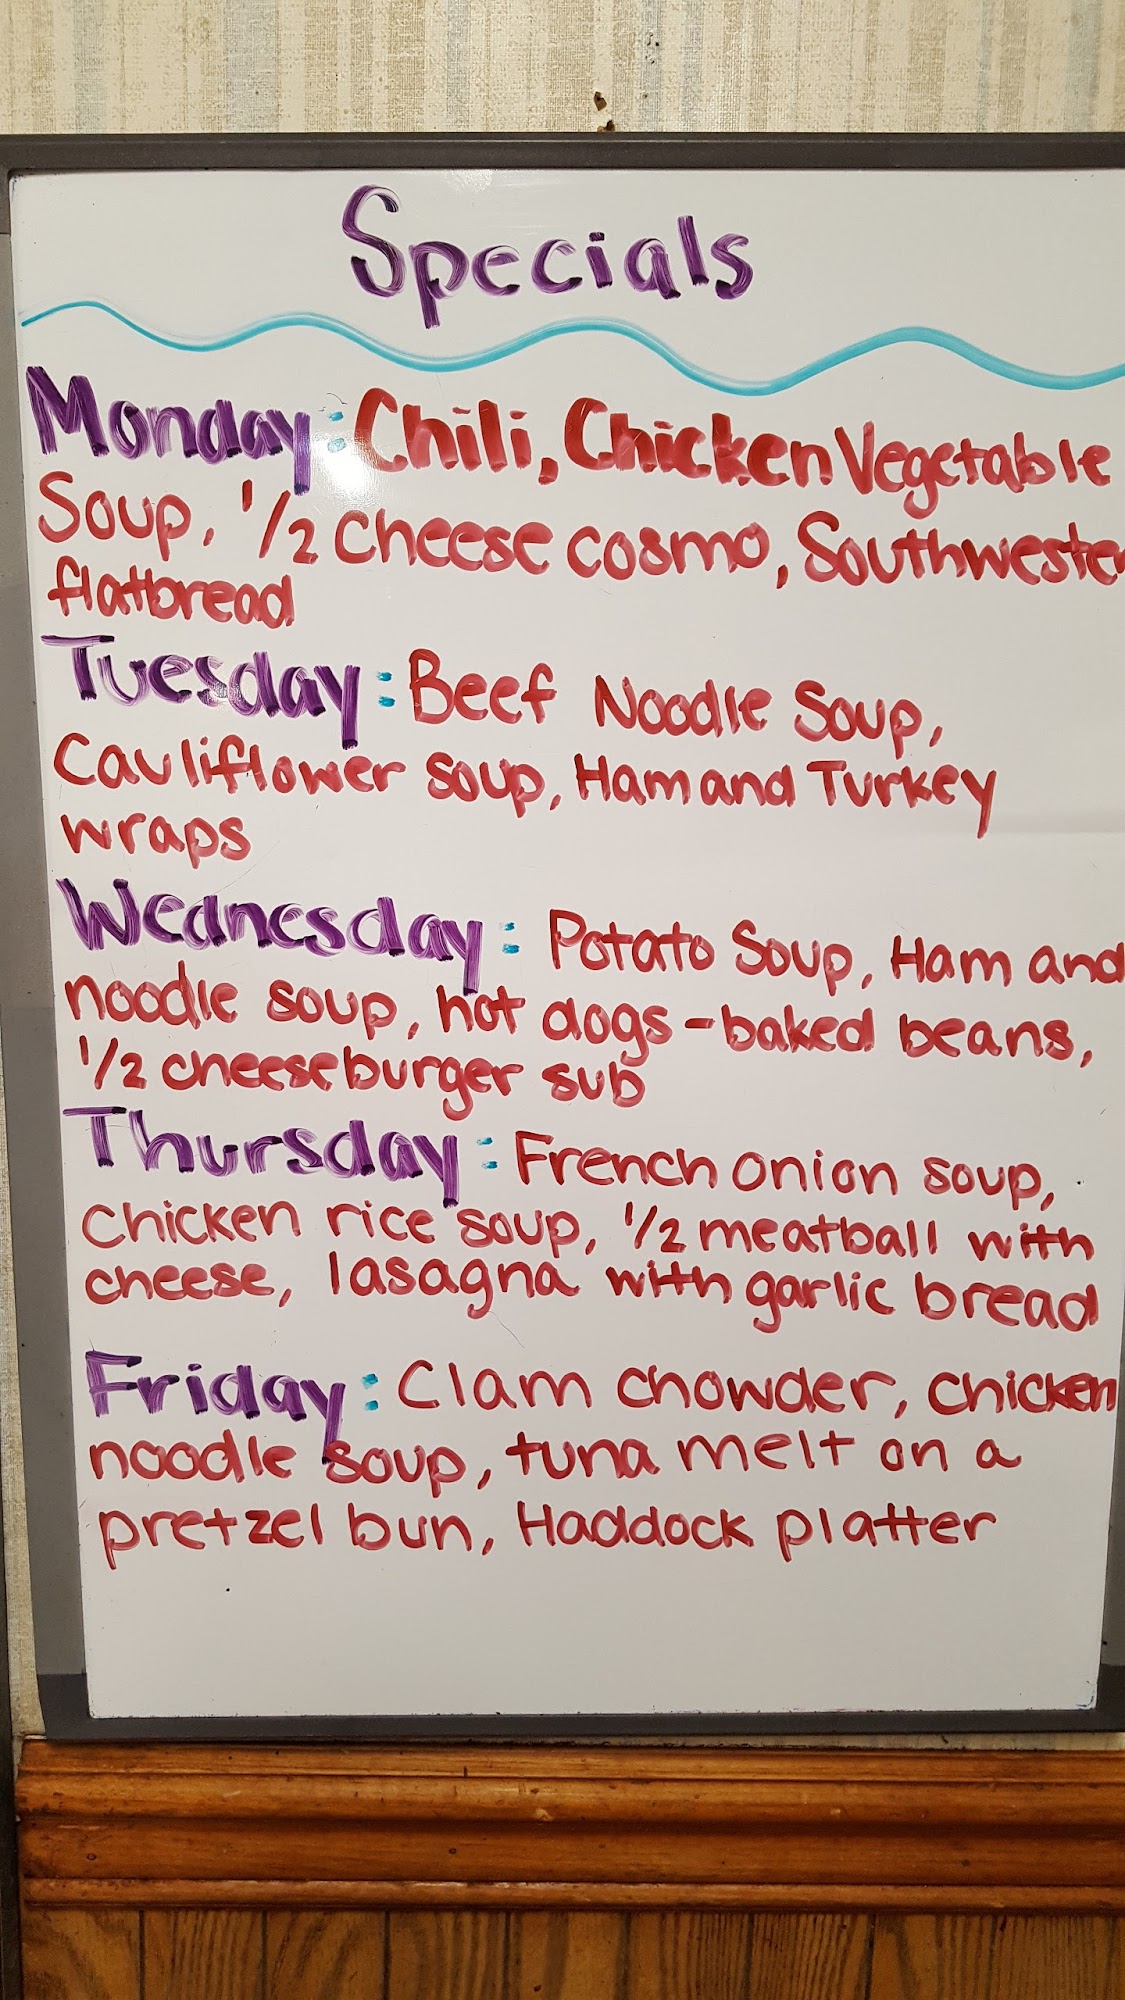 Specials
Monday: Chili, Chicken Vegetable
Soup, 1/2 cheese cosmo, Southwester
flatbread
Tuesday: Beef Noodle Soup,
Cauliflower soup, Ham and Turkey
wraps
Wednesday: Potato Soup, Ham and
noodle soup, hot dogs - baked beans,
1/2 cheeseburger sub
Thursday: French onion soup,
chicken rice soup, 1/2 meatball with
cheese, lasagna with garlic bread
Friday: Clam chowder, chicken
noodle soup, tuna melt on a
pretzel bun, Haddock platter